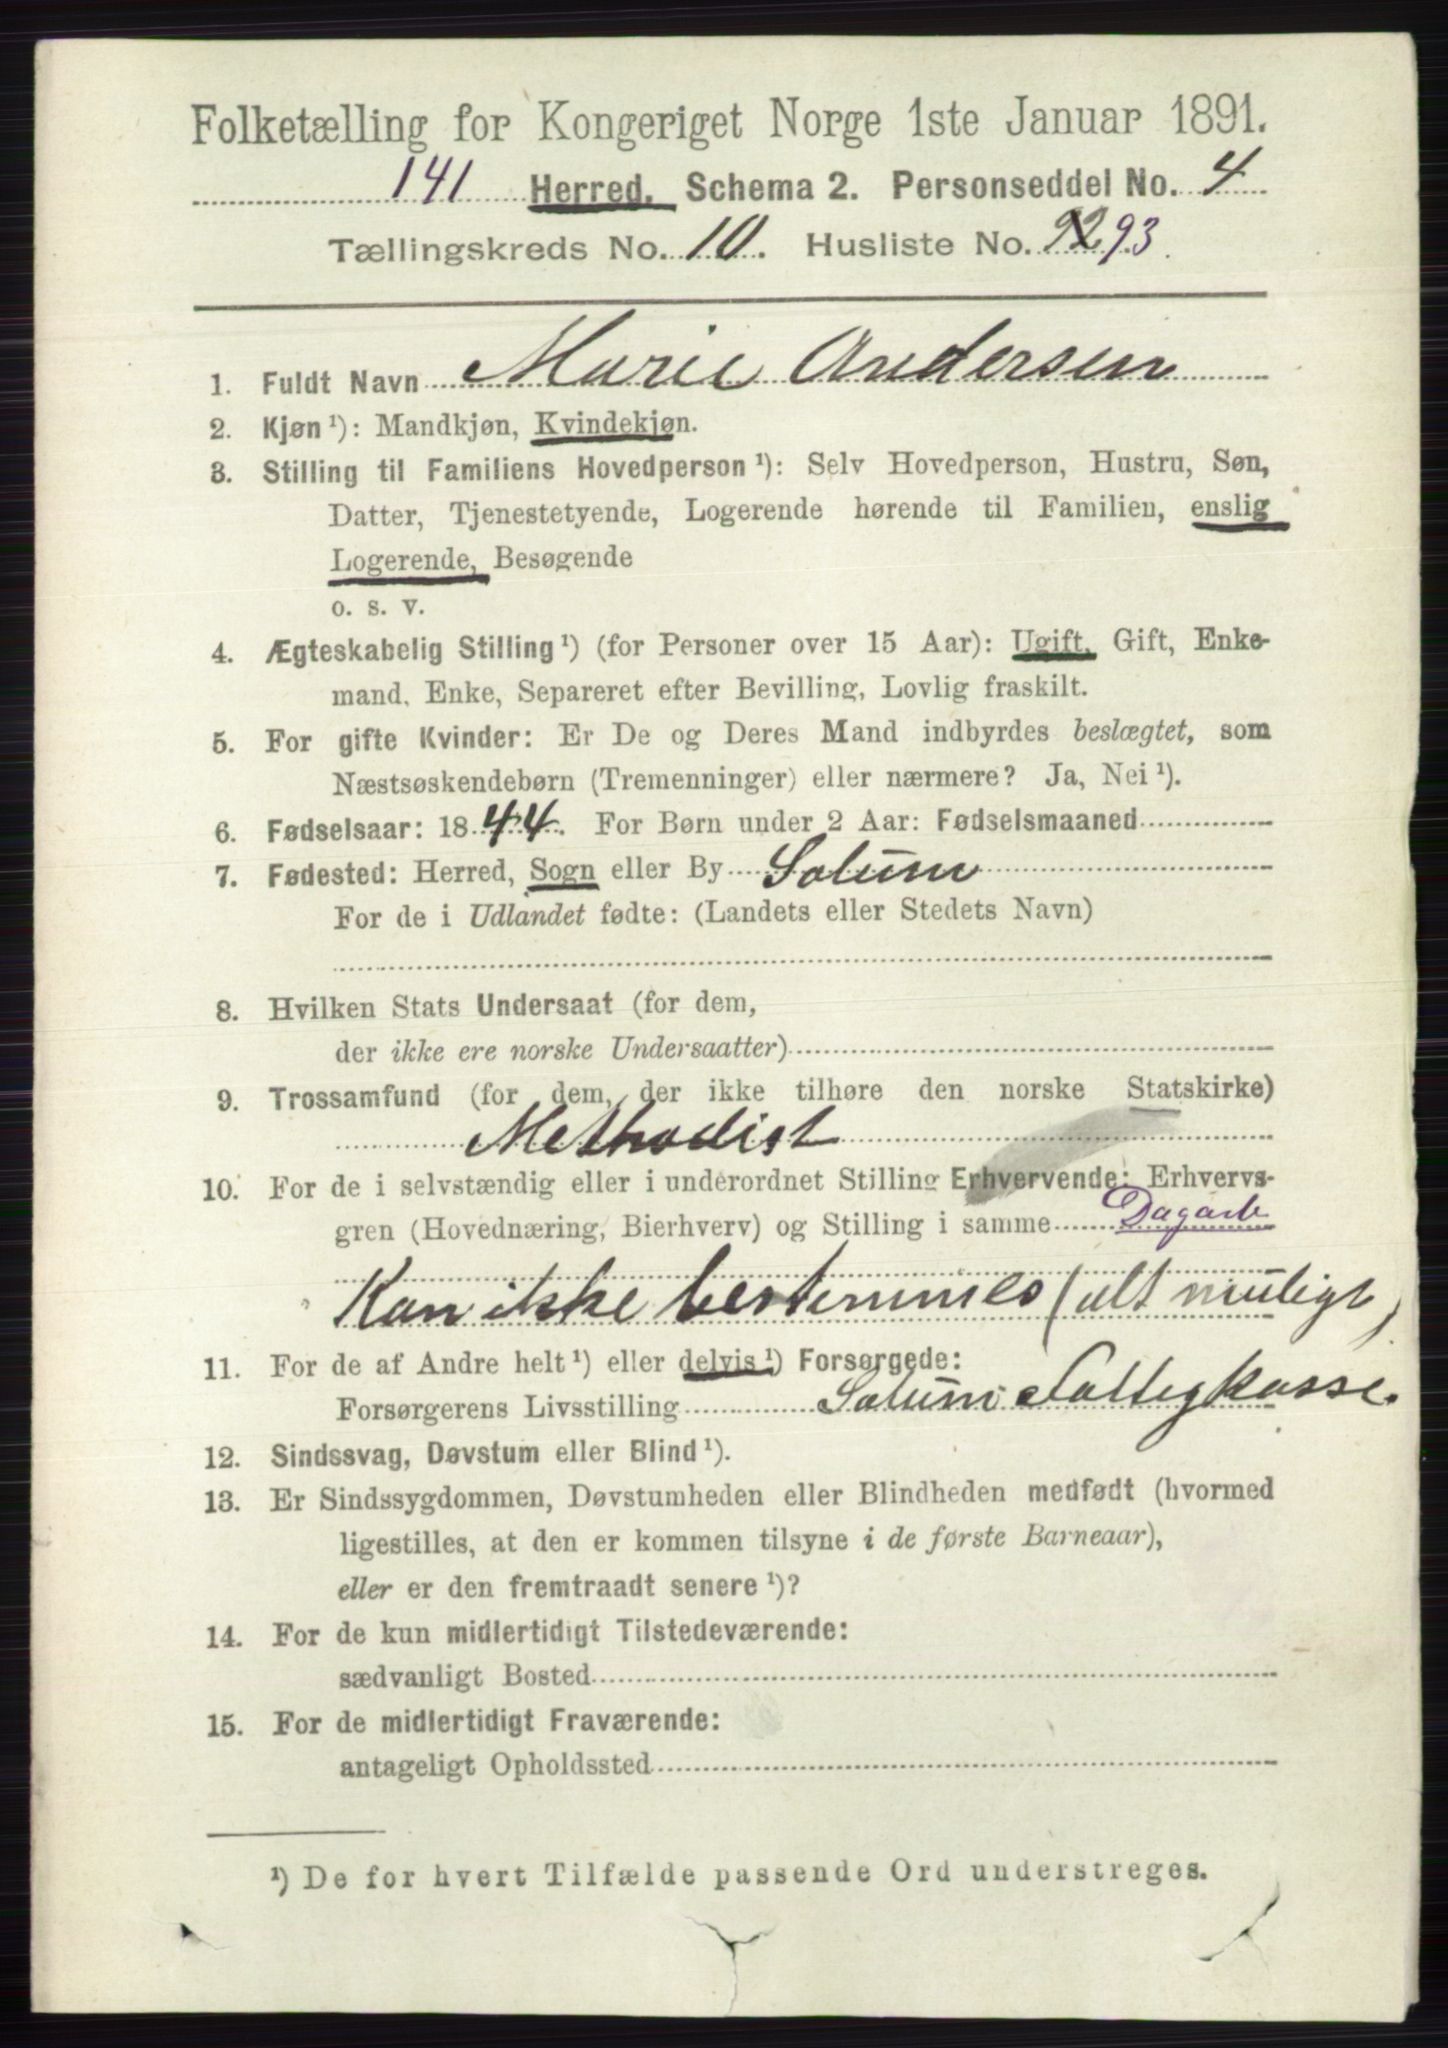 Folketælling for Kongeriget Norge 1ste Januar 1891.
141 Herred. Schema 2. Personseddel No. 4
Tællingskreds No. 10. Husliste No. 92 93.
1. Fuldt Navn Marie Andersen
2. Kjøn ¹): Mandkjøn, Kvindekjøn.
3. Stilling til Familiens Hovedperson ¹): Selv Hovedperson, Hustru, Søn,
Datter, Tjenestetyende, Logerende hørende til Familien, enslig
Logerende, Besøgende
o. s. v.
4. Ægteskabelig Stilling ¹) (for Personer over 15 Aar): Ugift, Gift, Enke-
mand, Enke, Separeret efter Bevilling, Lovlig fraskilt.
5. For gifte Kvinder: Er De og Deres Mand indbyrdes beslægtet, som
Næstsøskendebørn (Tremenninger) eller nærmere? Ja, Nei ¹).
6. Fødselsaar: 1844. For Børn under 2 Aar: Fødselsmaaned
7. Fødested: Herred, Sogn eller By Solum
For de i Udlandet fødte: (Landets eller Stedets Navn)
8. Hvilken Stats Undersaat (for dem,
der ikke ere norske Undersaatter)
9. Trossamfund (for dem, der ikke tilhøre den norske Statskirke)
Methodist
10. For de i selvstændig eller i underordnet Stilling Erhvervende: Erhvervs-
gren (Hovednæring, Bierhverv) og Stilling i samme Dagarb
Kan ikke bestemmes (alt muligt)
11. For de af Andre helt ¹) eller delvis ¹) Forsørgede:
Forsørgerens Livsstilling Solum Fattigkasse.
12. Sindssvag, Døvstum eller Blind ¹).
13. Er Sindssygdommen, Døvstumheden eller Blindheden medfødt (hvormed
ligestilles, at den er kommen tilsyne i de første Barneaar),
eller er den fremtraadt senere ¹)?
14. For de kun midlertidigt Tilstedeværende:
sædvanligt Bosted
15. For de midlertidigt Fraværende:
antageligt Opholdssted
¹) De for hvert Tilfælde passende Ord understreges.